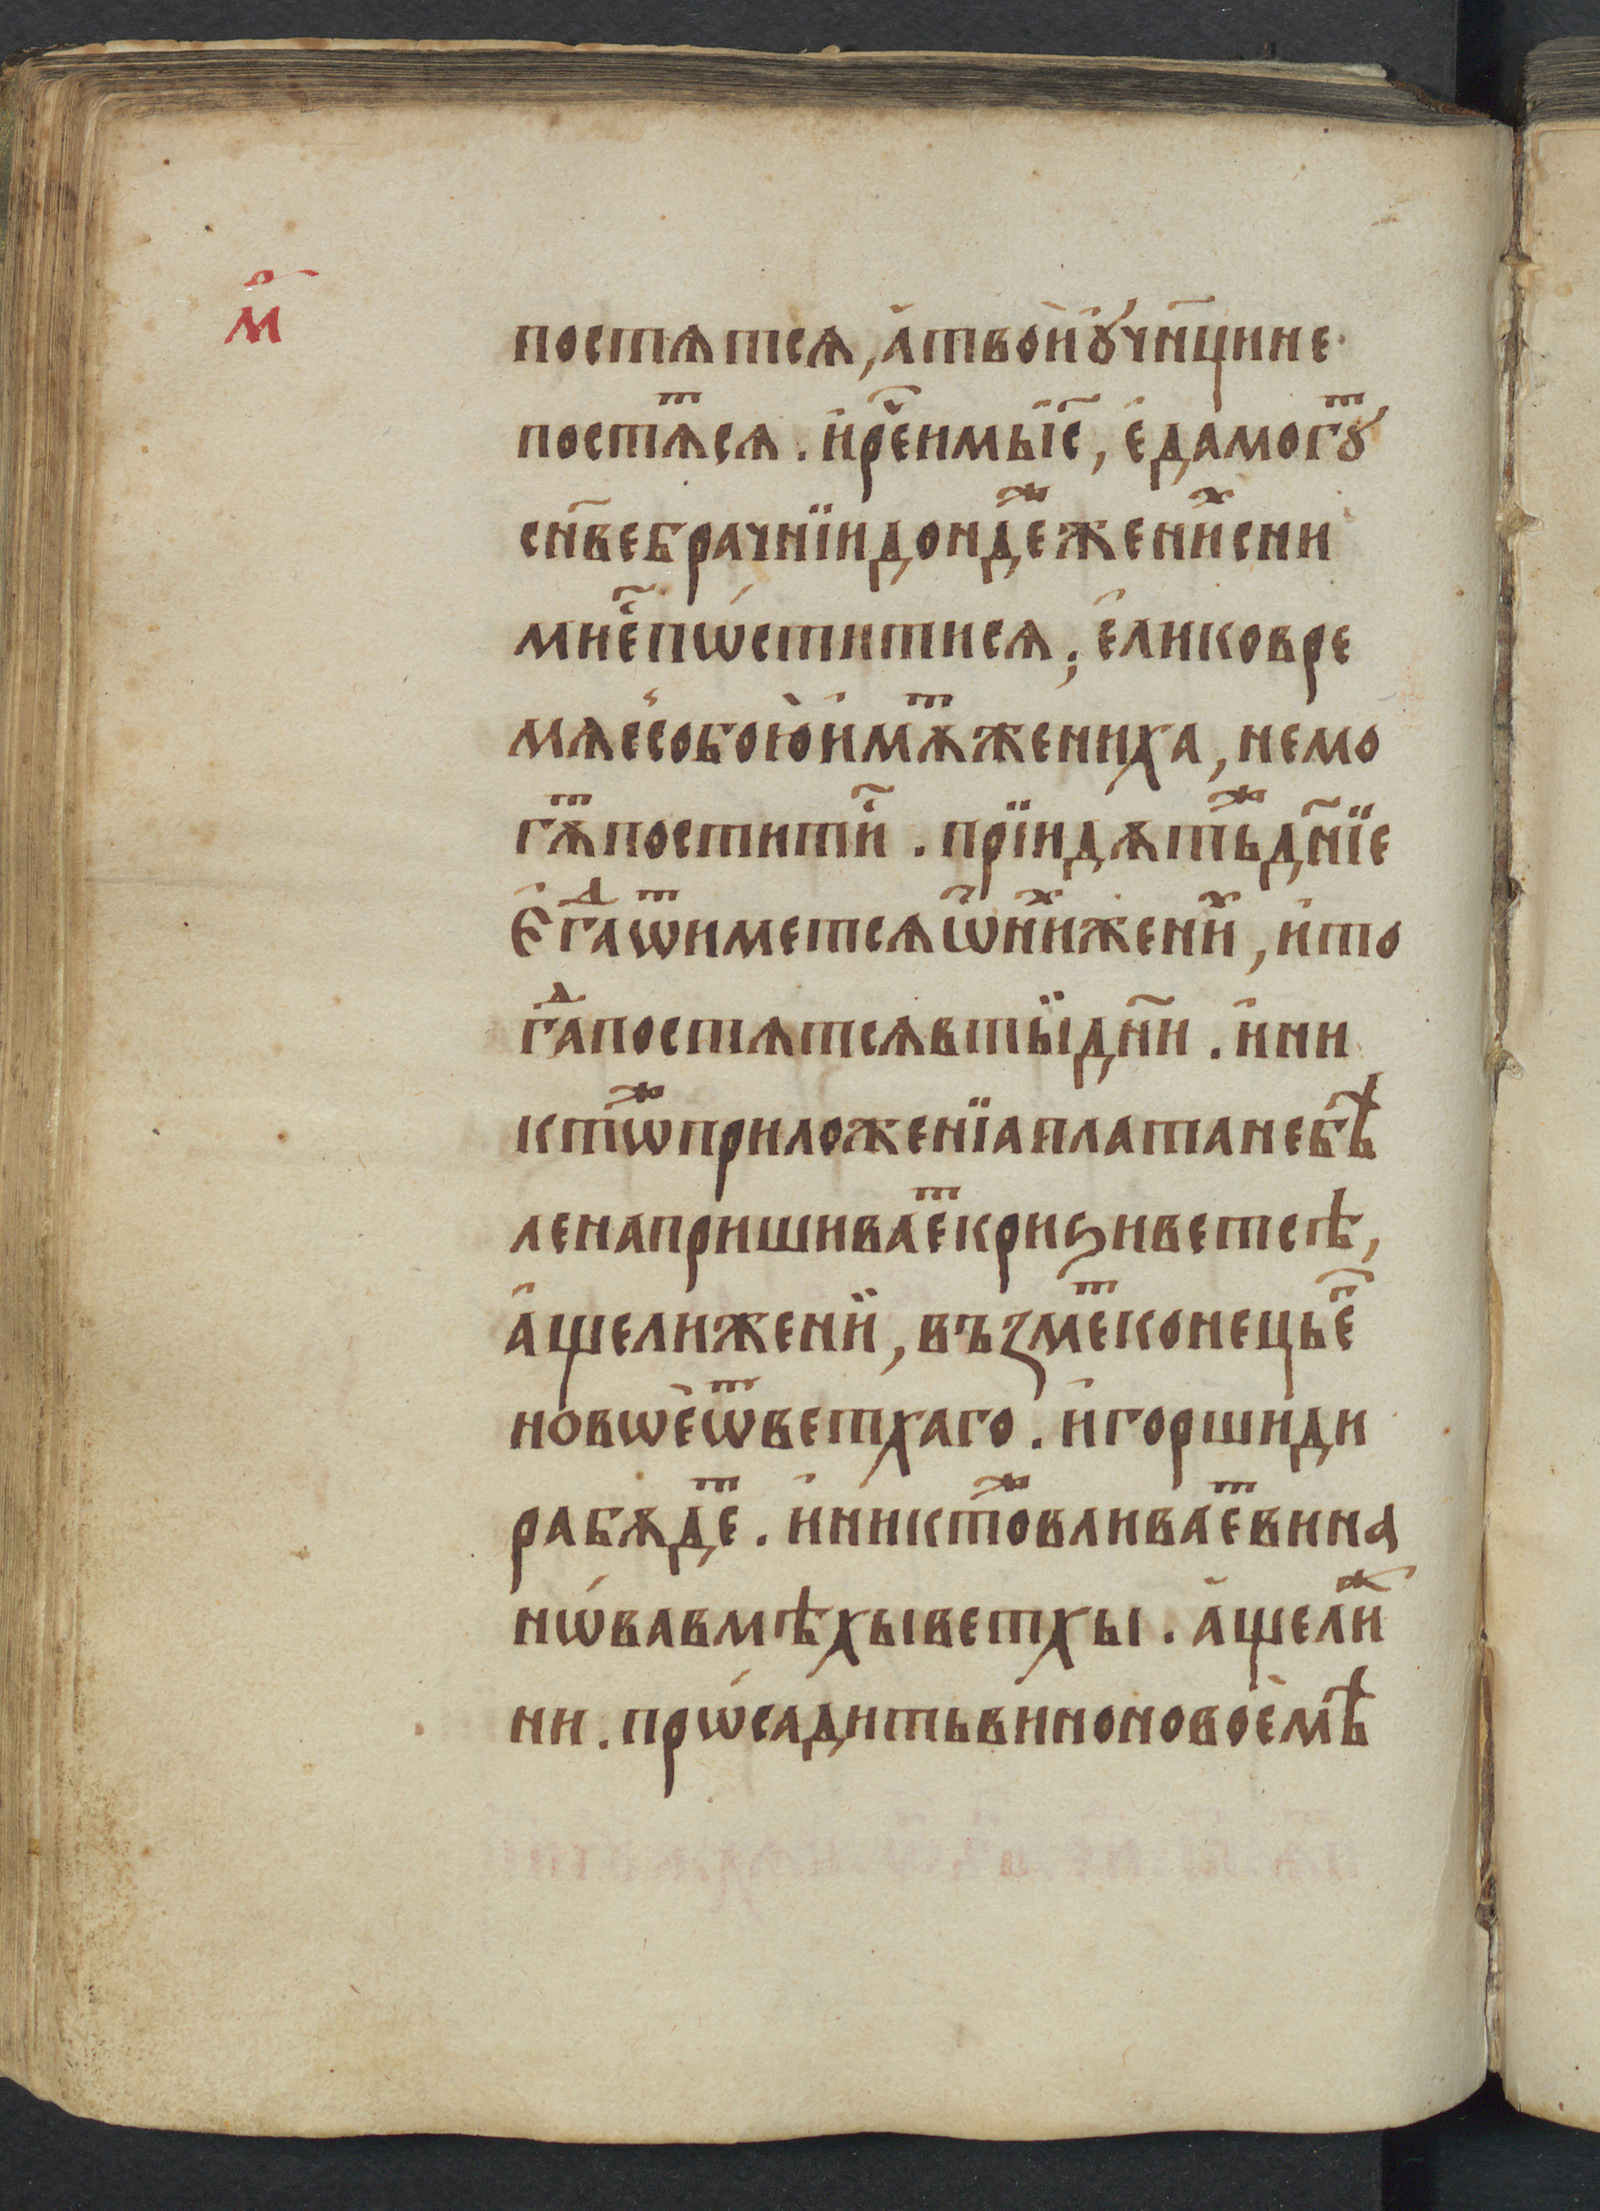 м҃
постѧтсѧ, а҆твои҆ꙋ҆чн҃цине
постѧⷮсѧ. и҆рⷱ҇еимы҆і҃с, е҆дамогꙋⷮ
сн҃вебрачнїидондеⷤжениⷯсни
мн҃е҆пѡ́ститисѧ; е҆ликовре
мѧс҆собою҆и҆мѫⷮжениха, немо
гѫⷮпостити҃. прїидѫтьⷤдн҃їе
Е҆гаⷣѿиметсѧѿ҆ниⷯжениⷯ, и҆то
гаⷣпостѧтсѧвтыїдн҃и. и҆ни
ктѡⷤприложенїаплатанебѣ
ленапришиваеⷮкриꙃиветсѣ,
а҆щелижений, възмеⷮконецье҆
новѡе҆ѿветхаго. и҆горшиди
рабѫдеⷮ. и҆никтоⷤвливаеⷮвина
нѡ́вавмѣхыветхы. а҆щелиⷤ
ни. прѡ́садитьвиноновое҆мѣ